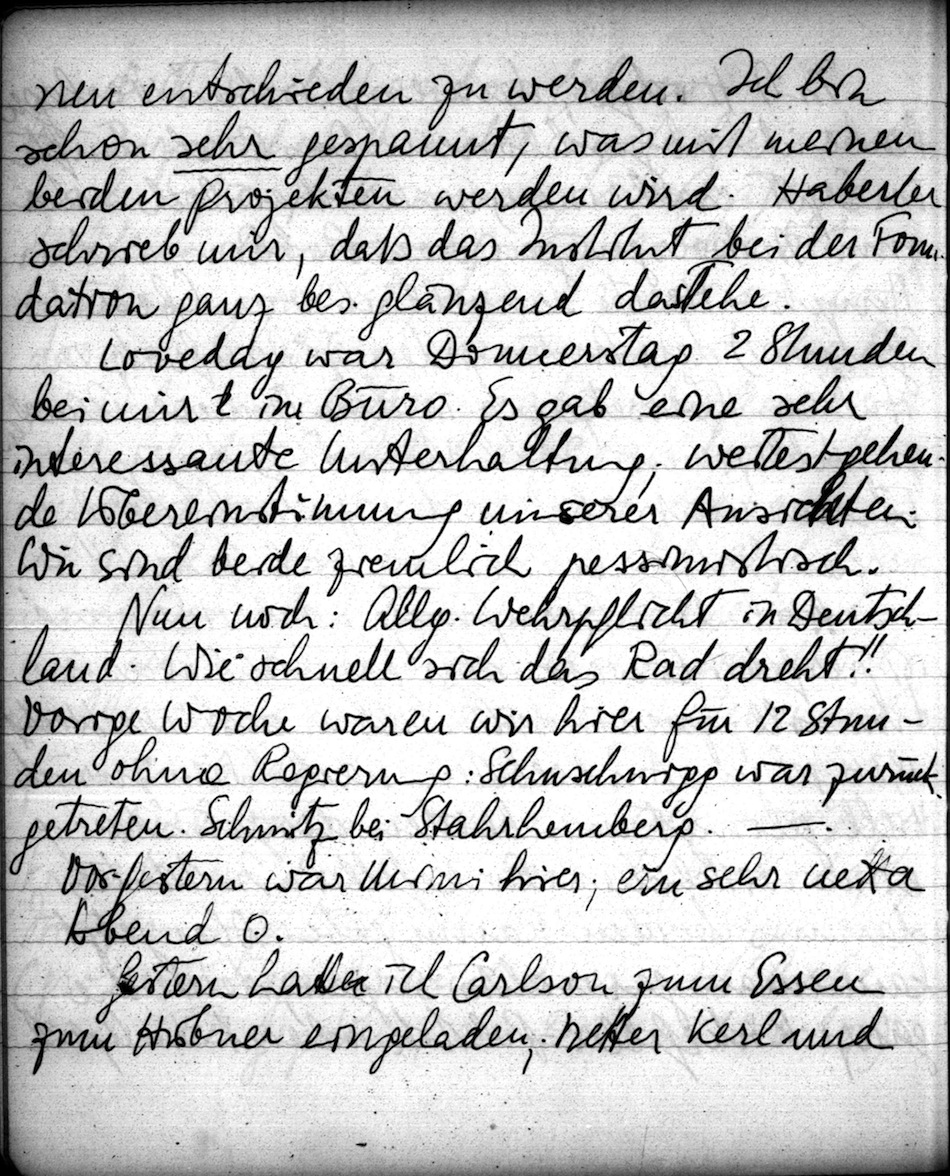 nen entschieden zu werden. Ich bin
schon sehr gespannt, was mit meinen
beiden Projekten werden wird. Haberler
schrieb mir, daß das Institut bei der Foun-
dation ganz bes. glänzend dastehe.
Loveday war Donnerstag 2 Stunden
bei mir im Büro. Es gab eine sehr
interessante Unterhaltung; weitestgehen-
de Übereinstimmung unserer Ansichten.
Wir sind beide ziemlich pessimistisch.
Nun noch: Allg. Wehrpflicht in Deutsch-
land. Wie schnell sich das Rad dreht!!
Vorige Woche waren wir hier für 12 Stun-
den ohne Regierung: Schuschnigg war zurück-
getreten. Schmitz bei Stahrhemberg. —.
Vorgestern war Mimi hier; ein sehr netter
Abend ⊙.
Gestern hatte ich Carlson zum Essen
zum Hübner eingeladen; netter Kerl und